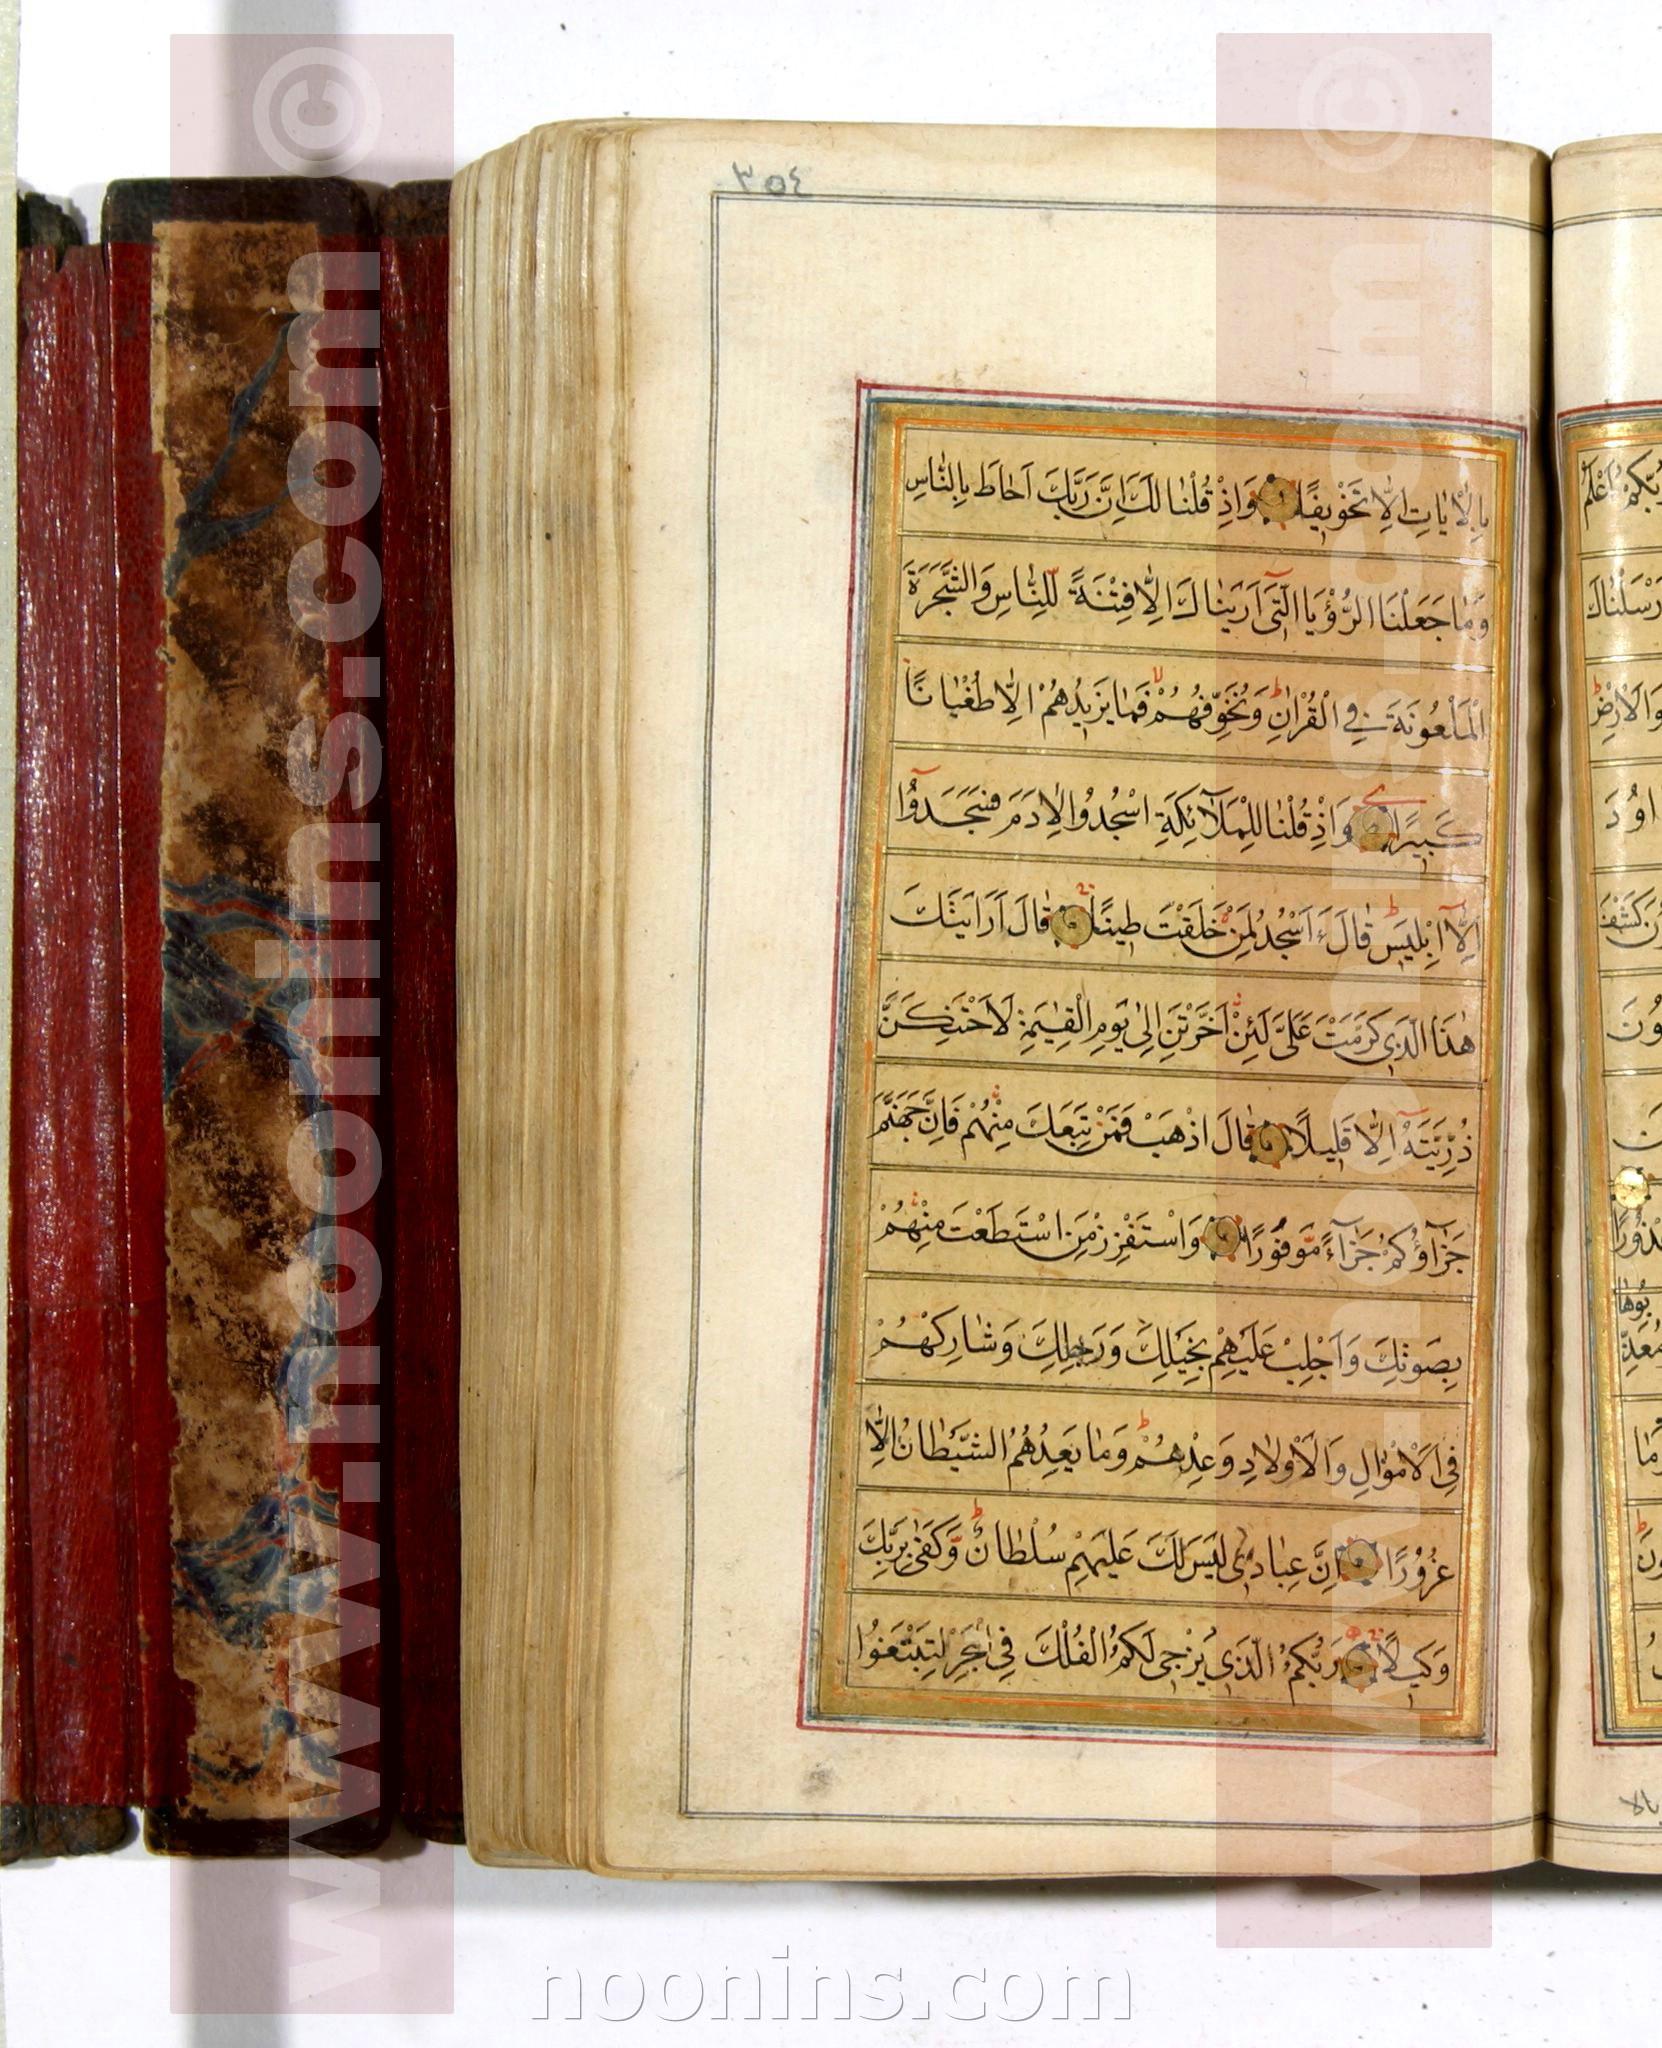 ٣٥٤
بِالْاٰيَاتِ اِلَّا تَخْوِيفًا وَاِذْ قُلْنٰا لَكَ اِنَّ رَبَّكَ اَحٰاطَ بِالنّٰاسِ
وَمٰا جَعَلْنَا الرُّؤْيَا الَّتِٓي اَرَيْنٰاكَ اِلّٰا فِتْنَةً لِلنّٰاسِ وَالشَّجَرَةَ
الْمَلْعُونَةَ فِي الْقُرْاٰنِ وَنُخَوِّفُهُمْ فَمٰا يَزِيدُهُمْ اِلّٰا طُغْيٰانًا
كَبِيرًا وَاِذْ قُلْنٰا لِلْمَلٰٓائِكَةِ اسْجُدُوا لِاٰدَمَ فَسَجَدُٓوا
اِلَّٓا اِبْلِيسَ قٰالَ ءَاَسْجُدُ لِمَنْ خَلَقْتَ طِينًا قٰالَ اَرَاَيْتَكَ
هٰذَا الَّذِي كَرَّمْتَ عَلَيَّ لَئِنْ اَخَّرْتَنِ اِلٰى يَوْمِ الْقِيٰمَةِ لَاَحْتَنِكَنَّ
ذُرِّيَّتَهُٓ اِلَّا قَلِيلًا قٰالَ اذْهَبْ فَمَنْ تَبِعَكَ مِنْهُمْ فَاِنَّ جَهَنَّمَ
جَزَٓاؤُكُمْ جَزَٓاءً مَوْفُورًا وَاسْتَفْزِزْ مَنِ اسْتَطَعْتَ مِنْهُمْ
بِصَوْتِكَ وَاَجْلِبْ عَلَيْهِمْ بِخَيْلِكَ وَرَجِلِكَ وَشٰارِكْهُمْ
فِي الْاَمْوٰالِ وَالْاَوْلٰادِ وَعِدْهُمْ وَمٰا يَعِدُهُمُ الشَّيْطٰانُ اِلّٰا
غُرُورًا اِنَّ عِبٰادِي لَيْسَ لَكَ عَلَيْهِمْ سُلْطٰانٌ وَكَفٰى بِرَبِّكَ
وَكِيلًا رَبُّكُمُ الَّذِي يُزْجِي لَكُمُ الْفُلْكَ فِي الْبَحْرِ لِتَبْتَغُوا
www.noonins.com ©
www.noonins.com ©
noonins.com